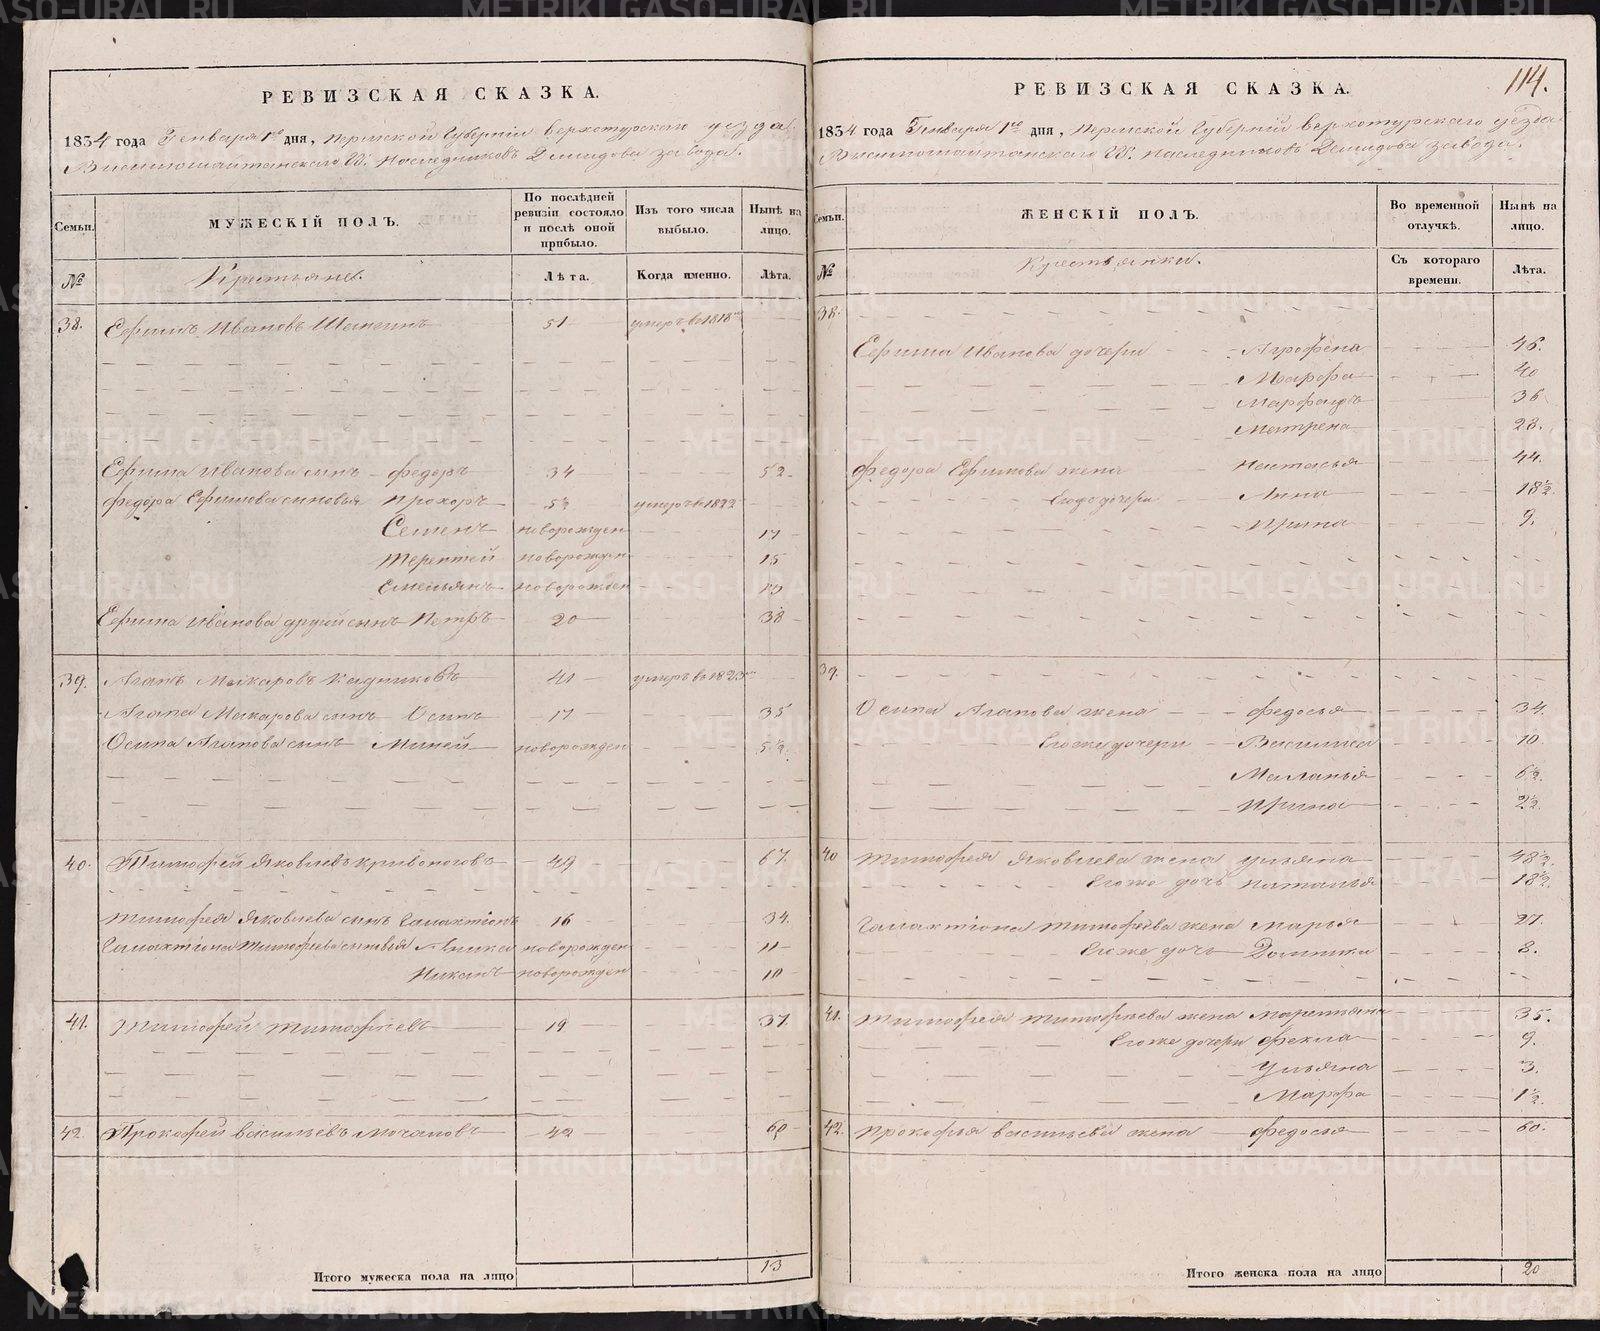 РЕВИЗСКАЯ СКАЗКА.
1834 года Генваря 1го дня, Пермской Губернiи Верхотурскаго уезда
Висимошайтанскаго Гг. Наследниковъ Демидова завода.
Семьи.
МУЖЕСКIЙ ПОЛЪ.
По послѣдней ревизiи состояло и послѣ оной прибыло.
Изъ того числа выбыло.
Нынѣ на лицо.
№
Крестьяне.
Лѣта.
Когда именно.
Лѣта.
38. Ефимъ Ивановъ 51 умеръ в 1818
Ефима Иванова сынъ Федоръ 34 52
Федора Ефимова сыновья Прохоръ 5½ умеръ в 1822
Семенъ новорожден 17
Терентей новорожден 15
Емельянъ новорожден 10
Ефима Иванова другой сынъ Петръ 20 38
39. Агапъ Макаровъ Кадниковъ 41 умеръ в 1823
Агапа Макарова сынъ Осипъ 17 35
Осипа Агапова сынъ Миней новорожден 5½
40. Тимофей Яковлевъ Кривоноговъ 49 67.
Тимофея Яковлева сынъ Галактiонъ 16 34.
Галактiона Тимофеева сыновья Аника новорожден 11
Никанъ новорожден 10
41. Тимофей Тимофеевъ 19 37.
42. Прокофей Васильевъ Мочаловъ 42 60
Итого мужеска пола на лицо 13
114.
РЕВИЗСКАЯ СКАЗКА.
1834 года Генваря 1го дня, Пермской Губернiй Верхотурскаго уезда
Висимошайтанскаго Гг. Наследниковъ Демидова завода.
Семьи.
ЖЕНСКIЙ ПОЛЪ.
Во временной отлучкѣ.
Нынѣ на лицо.
№
Крестьянки.
Съ котораго времени.
Лѣта.
38.
Ефима Иванова дочери Агрофена 46.
Марфа 40
36
Матрена 28.
Федора Ефимова жена Настасья 44.
Его дочери Анна 18½
Ирина 9.
39.
Осипа Агапова жена Федосья 34.
Его же дочери Василиса 10
Маланья 6½
Ирина 2½
40 Тимофея Яковлева жена Ульяна 48½
Его же дочь Наталья 18½
Галактiона Тимофеева жена Марья 27
Его же дочь Домника 8.
41. Тимофея Тимофеева жена Маремьяна 35.
Его же дочери Фекла 9.
Ульяна 3.
Марфа 1½
42. Прокофья Васильева жена Федосья 60.
Итого женска пола на лицо 20
METRIKI.GASO-URAL.RU